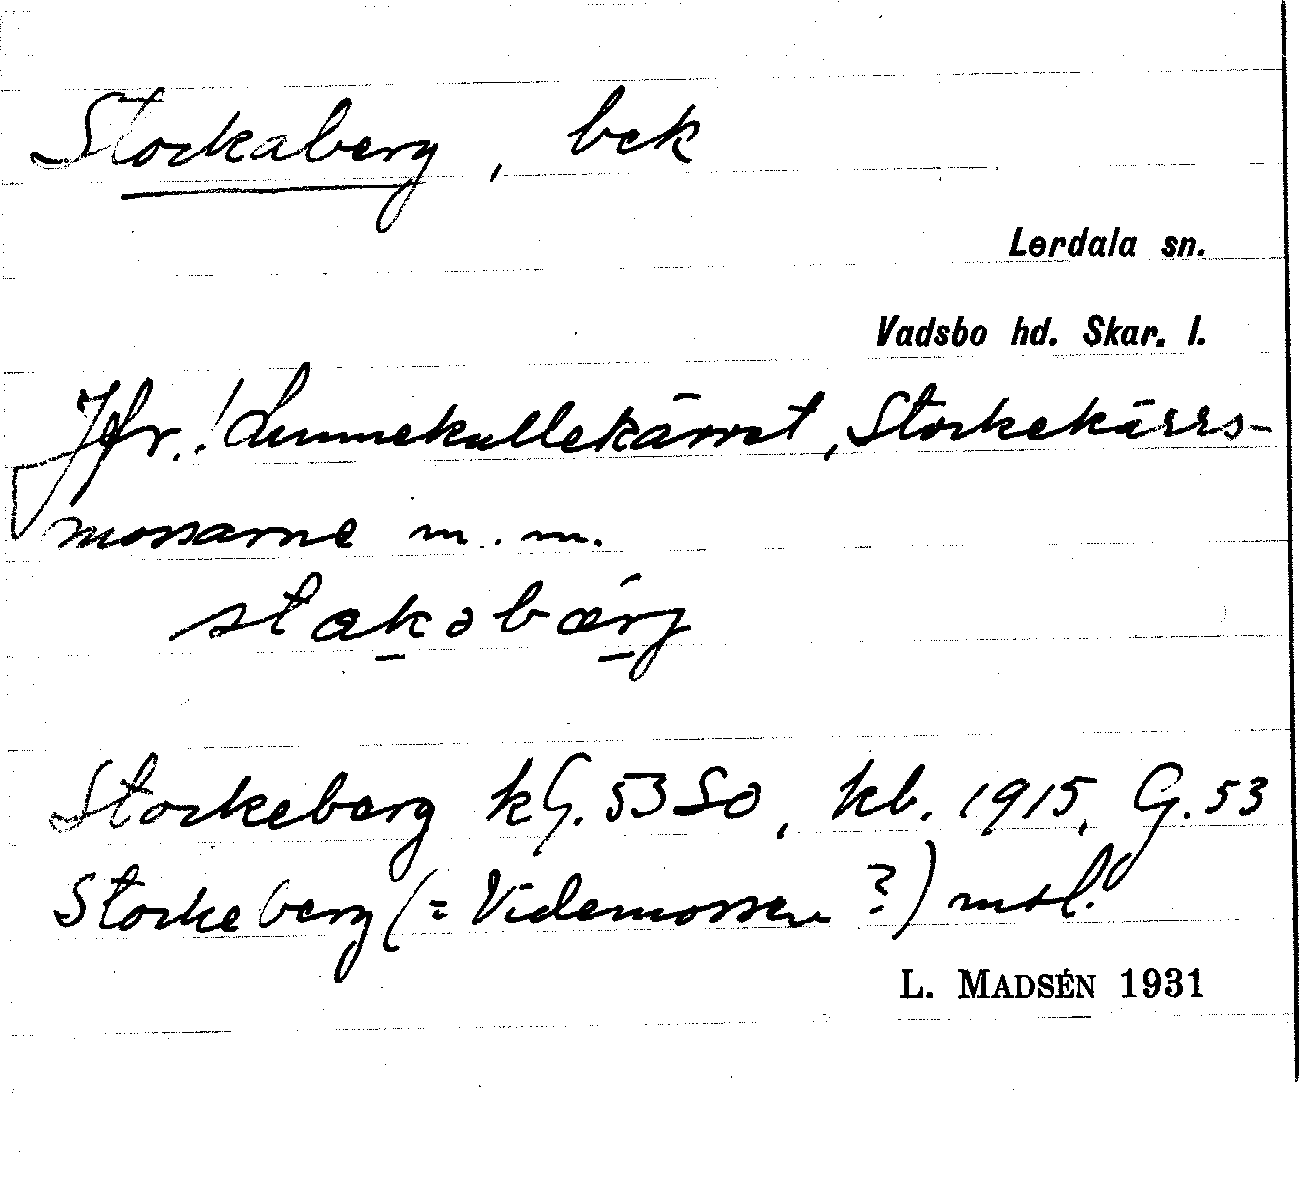 Storkaberg, bek
Lerdala sn.
Vadsbo hd. Skar. l.
Jfr.! Lunnekullekärret, Storkekärrs-
mossarne m.m.
stakəbærj
Storkeberg kG. 53 SO, kb. 1915, G. 53
Storkeberg (= Videmossen ?) msl.
L. MADSÉN 1931